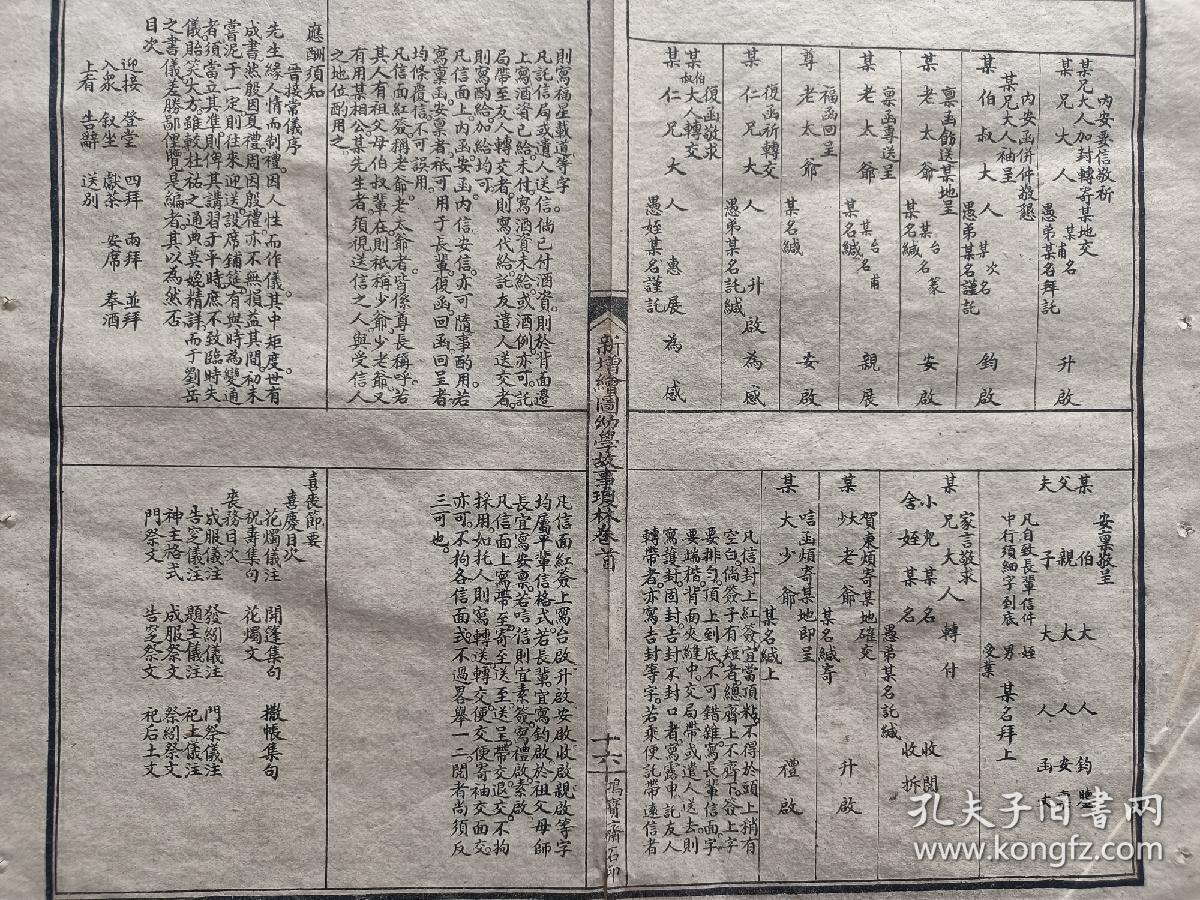 內安要信敬祈
某兄大人加封轉寄某地交
某兄大人 升啟
某甫名
愚弟某名拜託
內安函併件敬懇
某兄大人袖呈
某伯叔大人 鈞啟
某次名
愚弟某名謹託
稟函飭送某地呈
某老太爺 安啟
某台篆
某名緘
稟函專送呈
某老太爺 親展
某台甫
某名緘
福函回呈
尊老太爺 安啟
某名緘
復函祈轉交
某仁兄大人 升啟為感
愚弟某名託緘
復函敬求
某伯叔大人轉交
某仁兄大人 惠展為感
愚姪某名謹託
安稟敬呈
某伯大人 鈞鑒
父親大人 安稟
夫子大人 函丈
凡自致長輩信件
中行須細字到底
姪男受業 某名拜上
家言敬求
某兄大人轉付
小兒某名 收開
舍姪某名 收拆
愚弟某名託緘
賀柬煩寄某地確交
某大老爺 升啟
某名緘寄
唁函煩寄某地即呈
某大少爺 禮啟
某名緘上
凡信封上紅簽宜當頂粘不得於頭上稍有
空白倘簽子有短者總齊上不齊下簽上字
要排勻頂上到底不可錯雜寫長輩信面字
要端楷背面夾縫中交局帶或遣人送去則
寫護封固封吉封不封口者寫露申託友人
轉帶者亦寫吉封等字若乘便託帶遠信者
新增繪圖幼學故事瓊林卷首
十六
鴻寶齋石印
則寫福星載道等字
凡託信局或遣人送信倘已付酒資則於背面邊
上寫酒資已給未付寫酒資未給或酒例亦可託
局帶至友人轉交者則寫代給託友遣人送交者
則寫酌給加給均可
凡信面上內函安函內信安信亦可隨事酌用若
寫稟函安稟者祇可用于長輩復函回函回呈者
均係覆信不可誤用
凡信面紅簽稱老爺老太爺者皆係尊長稱呼若
其人有祖父母伯叔輩在則祇稱少爺少老爺又
有用某相公某先生者須視送信之人與受信人
之地位酌用之
應酬須知
晉接常儀序
先生緣人情而制禮因人性而作儀其中矩度世有
成書然殷因夏禮周因殷禮亦不無損益其間初未
嘗泥于一定則往來迎送設席鋪筵有與時為變通
者須當立其準則俾其講習于平時庶不致臨時失
儀貽笑大方雖較杜祐之通典莫媲精詳而于劉岳
之書儀差勝鄙俚覽是編者其以為然否
目次
迎接 登堂 四拜 兩拜 並拜
入泉 敘坐 獻茶 安席 奉酒
上肴 告辭 送別
凡信面紅簽上寫台啟升啟安啟收啟親啟等字
均屬平輩信格式若長輩宜寫鈞啟於祖父母師
長宜寫安稟若唁信則宜素簽寫禮啟素啟
凡信面上寫帶至寄至送至送呈帶交退交不拘
採用如托人則寫轉送轉交便交便寄袖交面交
亦可不拘各信面式不過畧舉一二閱者尚須反
三可也
喜喪節要
喜慶目次
花燭儀注 開篷集句 撒帳集句
祝壽集句 花燭文
喪務目次
成服儀注 發紖儀注 門祭儀注
告窆儀注 題主儀注 祀土儀注
神主格式 成服祭文 祭紖祭文
門祭文 告窆祭文 祀后土文
孔夫子旧书网
www.kongfz.com